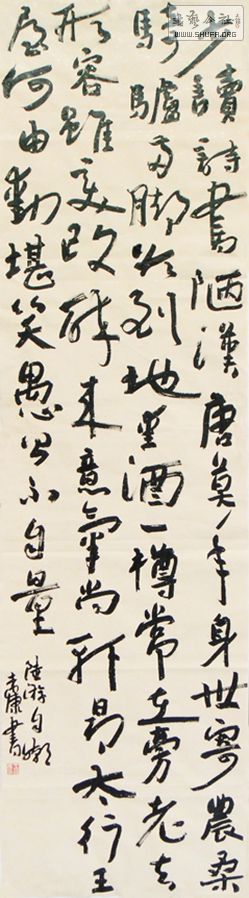 少讀詩書陋漢唐莫年身世寄農桑
騎驢兩脚欲到地愛酒一樽常在旁老去
形容雖變改醉來意氣尚軒昂太行王
屋何由動堪笑愚公不自量
陸游自嘲
康書
書藝公社
WWW.SHUFA.ORG